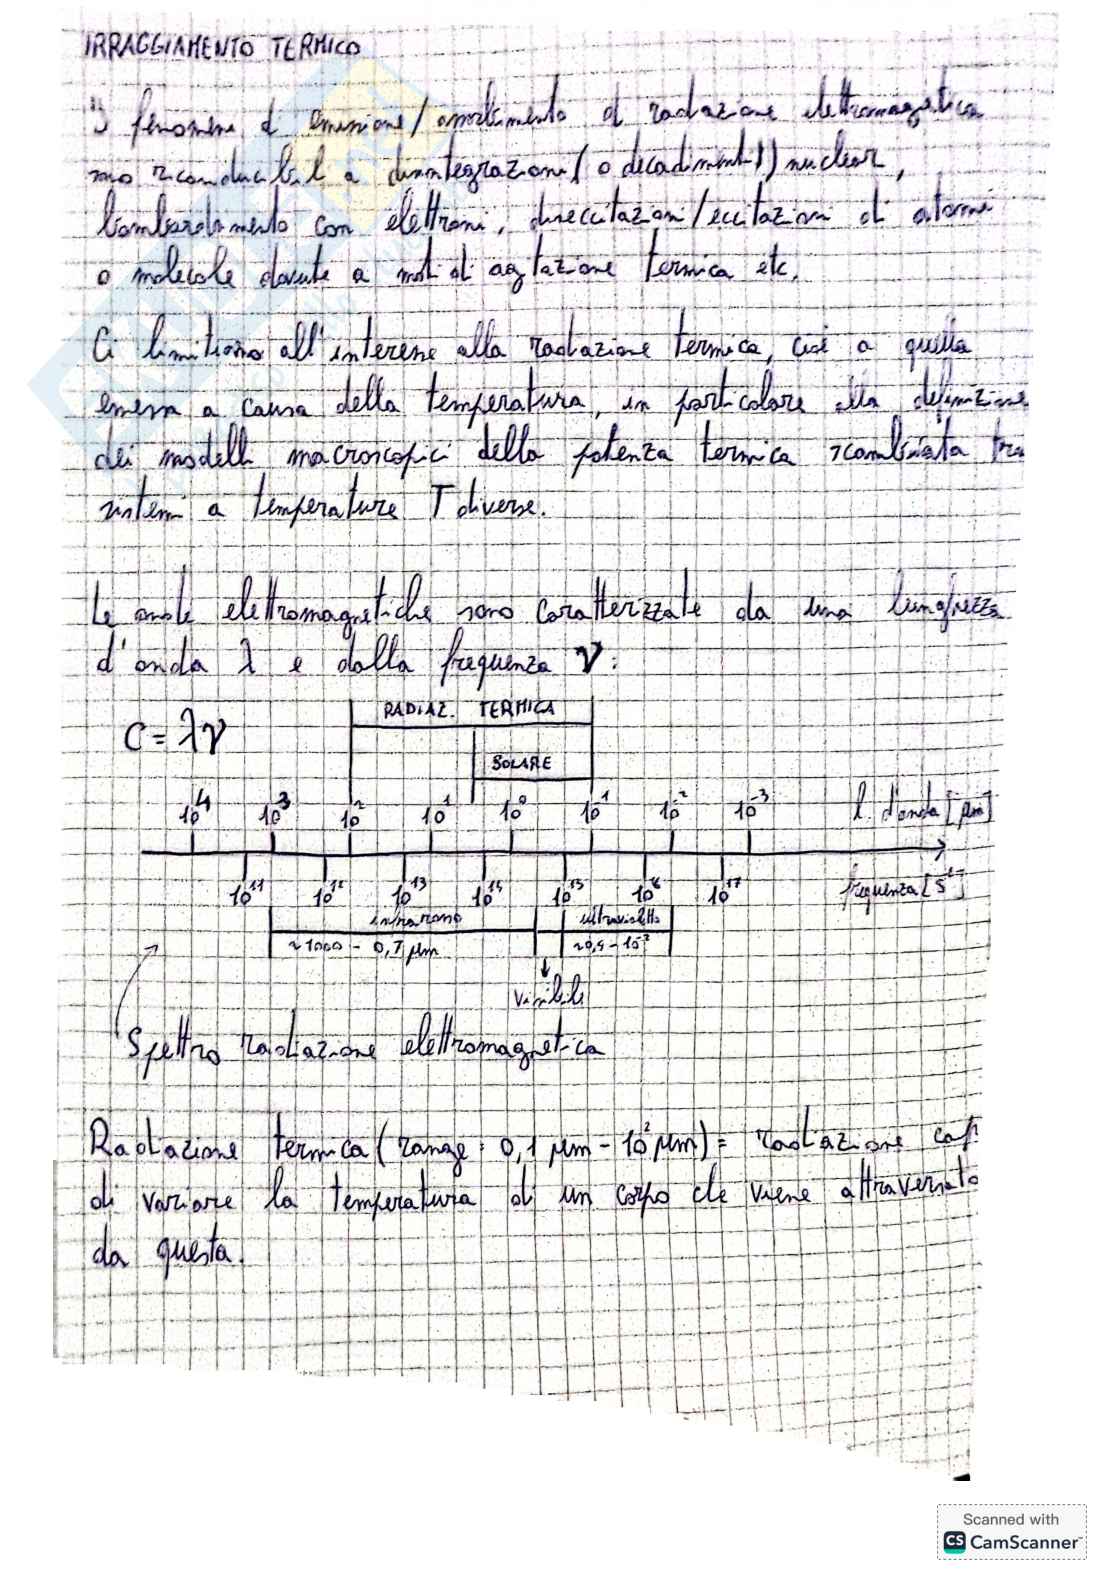 IRRAGGIAMENTO TERMICO
I fenomeni di emissione/assorbimento di radiazione elettromagnetica
sono riconducibili a disintegrazioni (o decadimenti) nucleari,
bombardamento con elettroni, diseccitazioni/eccitazioni di atomi
o molecole dovute a moti di agitazione termica etc.
Ci limitiamo all'interesse alla radiazione termica, cioè a quella
emessa a causa della temperatura, in particolare alla definizione
dei modelli macroscopici della potenza termica scambiata tra
sistemi a temperature T diverse.
Le onde elettromagnetiche sono caratterizzate da una lunghezza
d'onda λ e dalla frequenza ν:
RADIAZ. TERMICA
C = λν
SOLARE
10^4 10^3 10^2 10^1 10^0 10^-1 10^-2 10^-3 l. d'onda [μm]
10^11 10^12 10^13 10^14 10^15 10^16 10^17 frequenza [s^-1]
infrarosso ultravioletto
~1000 - 0,7 μm ~0,4 - 10^-2
visibile
Spettro radiazione elettromagnetica
Radiazione termica (range: 0,1 μm - 10^2 μm) = radiazione cap.
di variare la temperatura di un corpo che viene attraversato
da questa.
Scanned with
CS CamScanner